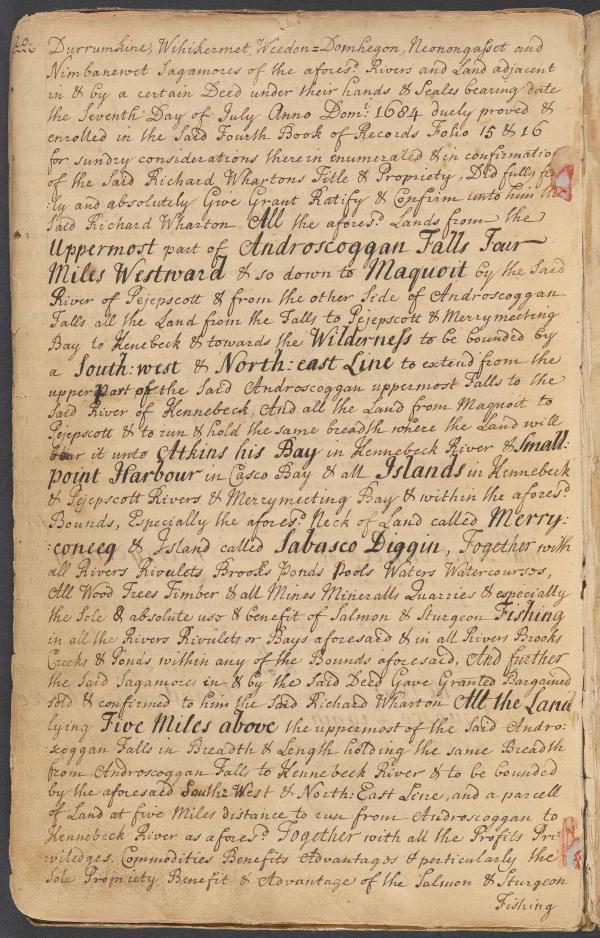 Durrumkine, Wihikermet, Weedon=Domhegon, Neonongasset and
Nimbanewet Sagamores of the afores.d Rivers and Land adjacent
in & by a certain Deed under their hands & Seales bearing date
the Seventh Day of July Anno Dom: 1684 duely proved &
enrolled in the Said Fourth Book of Records Folio 15 & 16
for sundry considerations therein enumerated & in confirmatio
of the Said Richard Whartons Title & Propriety, Did fully
ly and absolutely Give Grant Ratify & Confirm unto him the
Said Richard Wharton All the afores.d Lands from the
Uppermost part of Androscoggan Falls Four
Miles Westward & so down to Maquoit by the Said
River of Pejepscott & from the other Side of Androscoggan
Falls all the Land from the Falls to Pejepscott & Merrymeeting
Bay to Kenebeck & towards the Wilderness to be bounded by
a South:west & North:east Line to extend from the
upper part of the Said Androscoggan uppermost Falls to the
Said River of Kennebeck, And all the Land from Maquoit to
Pejepscott & to run & hold the same breadth where the Land will
bear it unto Atkins his Bay in Kennebeck River & Small:
point Harbour in Casco Bay & all Islands in Kennebeck
& Pejepscott Rivers & Merrymeeting Bay & within the afores.d
Bounds, Especially the afores.d Neck of Land called Merry:
:coneeg & Island called Sabasco Diggin, Together with
all Rivers Rivulets Brooks Ponds Pools Waters Watercourses,
All Wood Trees Timber & all Mines Mineralls Quarries & especially
the Sole & absolute use & benefit of Salmon & Sturgeon Fishing
in all the Rivers Rivulets or Bays aforesaid & in all Rivers Brooks
Creeks & Ponds within any of the Bounds aforesaid, And further
the Said Sagamores in & by the Said Deed Gave Granted Bargained
Sold & confirmed to him the Said Richard Wharton All the Land
lying Five Miles above the uppermost of the Said Andro:
:scoggan Falls in Breadth & Length holding the same Breadth
from Androscoggan Falls to Kennebeck River & to be bounded
by the aforesaid South:West & North:East Line, and a parcell
of Land at five Miles distance to run from Androscoggan to
Kennebeck River as afores.d Together with all the Profits Pri
viledges, Commodities Benefits Advantages & particularly the
Sole Propriety Benefit & Advantage of the Salmon & Sturgeon
Fishing